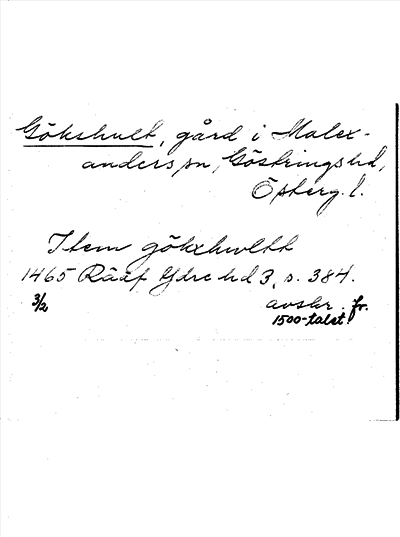 Gökshult, gård i Malex-
anders sn, Göstrings hd,
Österg. l.
Item gökxhwltt
1465 Rääf Ydre hd 3, s. 384.
3/2 avskr. fr.
1500-talet!